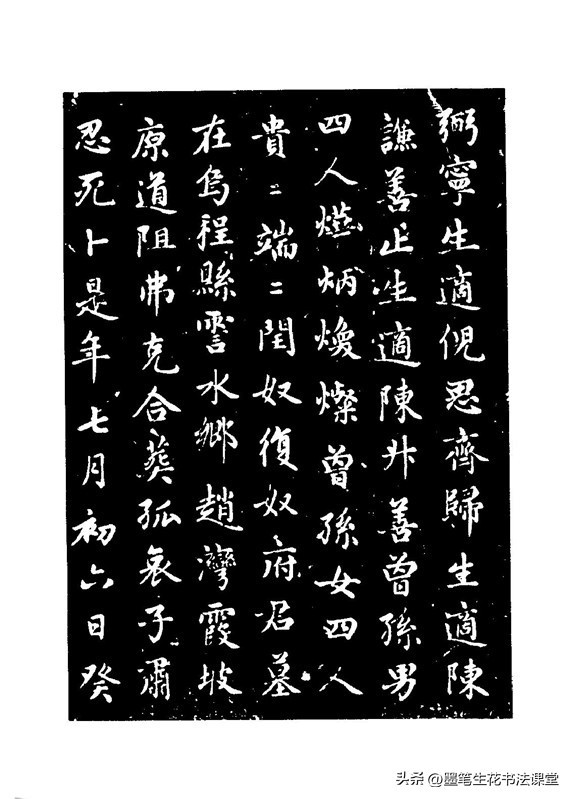 弼寧生適倪思齊歸生適陳
謙善止生適陳升善曾孫男
四人燧炳煥燦曾孫女四人
貴〻端〻閏奴復奴府君墓
在烏程縣霅水鄉趙灣霞坡
原道阻弗克合葬孤哀子肅
忍死卜是年七月初六日癸
头条 @墨笔生花书法课堂